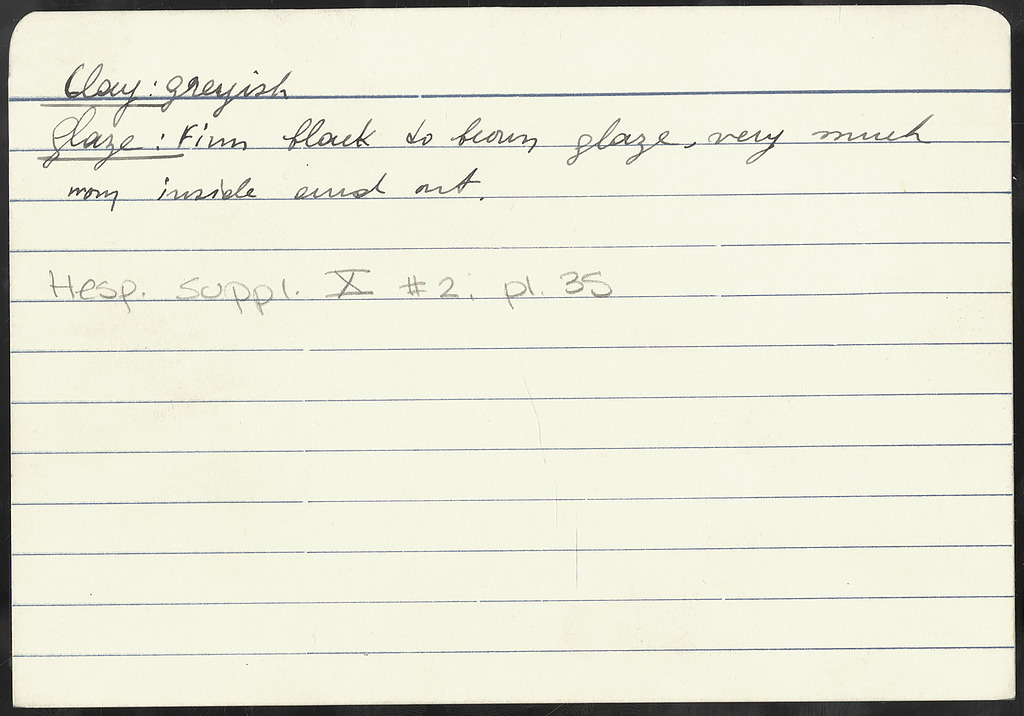 Clay: greyish
Glaze: Firm black to brown glaze, very much
worn inside and out.
Hesp. Suppl. X #2; pl. 35